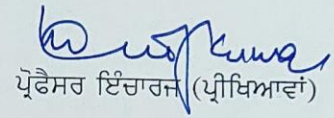 ਪ੍ਰੋਫੈਸਰ ਇੰਚਾਰਜ (ਪ੍ਰੀਖਿਆਵਾਂ)